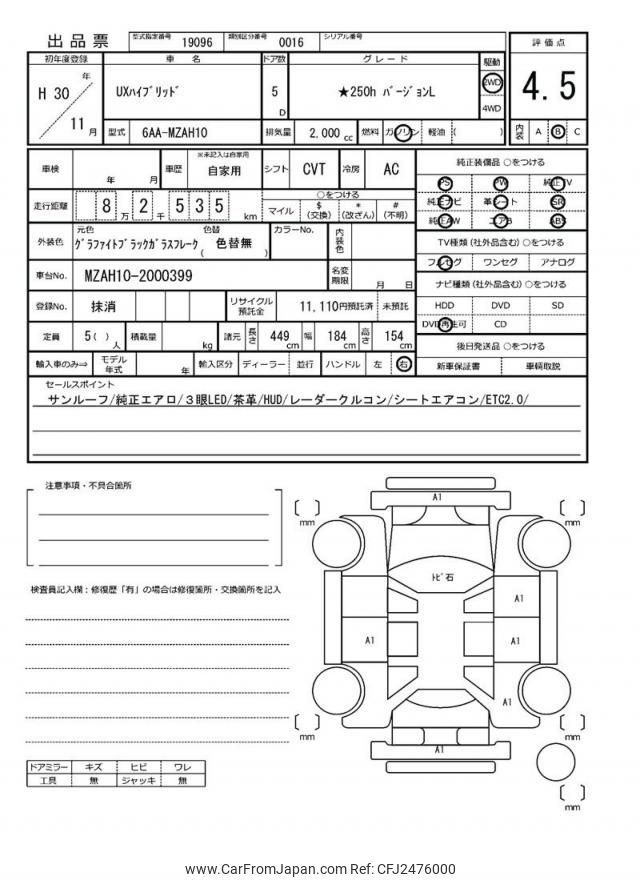 出品票
型式指定番号 19096 類別区分番号 0016 シリアル番号
評価点
4.5
内装 A B C
初年度登録 車名 ドア数 グレード 駆動
H 30 年 11 月
UXハイブリッド 5 D ★250h バージョンL 2WD 4WD
型式 6AA-MZAH10 排気量 2,000 cc 燃料 ガソリン 軽油 ( )
車検 年 月 車歴 ※未記入は自家用 自家用 シフト CVT 冷房 AC
走行距離 8 万 2 千 5 3 5 km
○をつける
マイル $ (交換) * (改ざん) # (不明)
外装色 元色 グラファイトブラックガラスフレーク 色替 ( 色替無 ) カラーNo. 内装色
車台No. MZAH10-2000399 名変期限 月 日
登録No. 抹消 リサイクル預託金 11,110円預託済 未預託
定員 5( ) 人 積載量 kg 諸元 長さ 449 cm 幅 184 cm 高さ 154 cm
輸入車のみ⇒ モデル年式 年 輸入区分 ディーラー 並行 ハンドル 左 右
純正装備品 ○をつける
PS PW 純正TV
純正ナビ 革シート SR
純正AW エアB ABS
TV種類 (社外品含む) ○をつける
フルセグ ワンセグ アナログ
ナビ種類 (社外品含む) ○をつける
HDD DVD SD
DVD再生可 CD
後日発送品 ○をつける
新車保証書 車輌取説
セールスポイント
サンルーフ/純正エアロ/3眼LED/茶革/HUD/レーダークルコン/シートエアコン/ETC2.0/
注意事項・不具合箇所
検査員記入欄：修復歴「有」の場合は修復箇所・交換箇所を記入
ドアミラー キズ ヒビ ワレ
工具 無 ジャッキ 無
A1
mm
mm
トビ石
A1
A1
A1
A1
mm
mm
A1
mm
www.CarFromJapan.com Ref: CFJ2476000